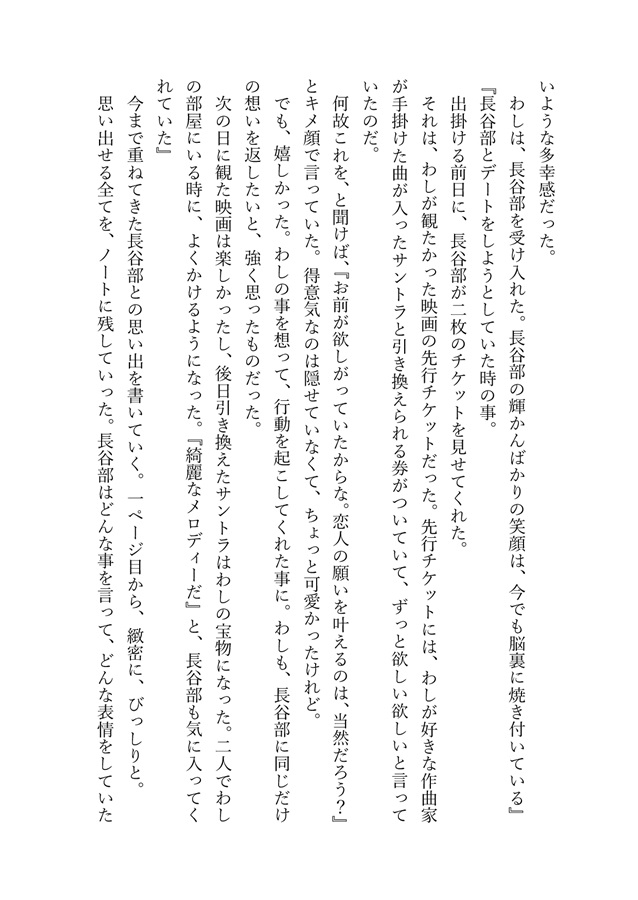 いような多幸感だった。
わしは、長谷部を受け入れた。長谷部の輝かんばかりの笑顔は、今でも脳裏に焼き付いている』
『長谷部とデートをしようとしていた時の事。
出掛ける前日に、長谷部が二枚のチケットを見せてくれた。
それは、わしが観たかった映画の先行チケットだった。先行チケットには、わしが好きな作曲家
が手掛けた曲が入ったサントラと引き換えられる券がついていて、ずっと欲しい欲しいと言って
いたのだ。
何故これを、と聞けば、『お前が欲しがっていたからな。恋人の願いを叶えるのは、当然だろう？』
とキメ顔で言っていた。得意気なのは隠せていなくて、ちょっと可愛かったけれど。
でも、嬉しかった。わしの事を想って、行動を起こしてくれた事に。わしも、長谷部に同じだけ
の想いを返したいと、強く思ったものだった。
次の日に観た映画は楽しかったし、後日引き換えたサントラはわしの宝物になった。二人でわし
の部屋にいる時に、よくかけるようになった。『綺麗なメロディーだ』と、長谷部も気に入ってく
れていた』
今まで重ねてきた長谷部との思い出を書いていく。一ページ目から、緻密に、びっしりと。
思い出せる全てを、ノートに残していった。長谷部はどんな事を言って、どんな表情をしていた